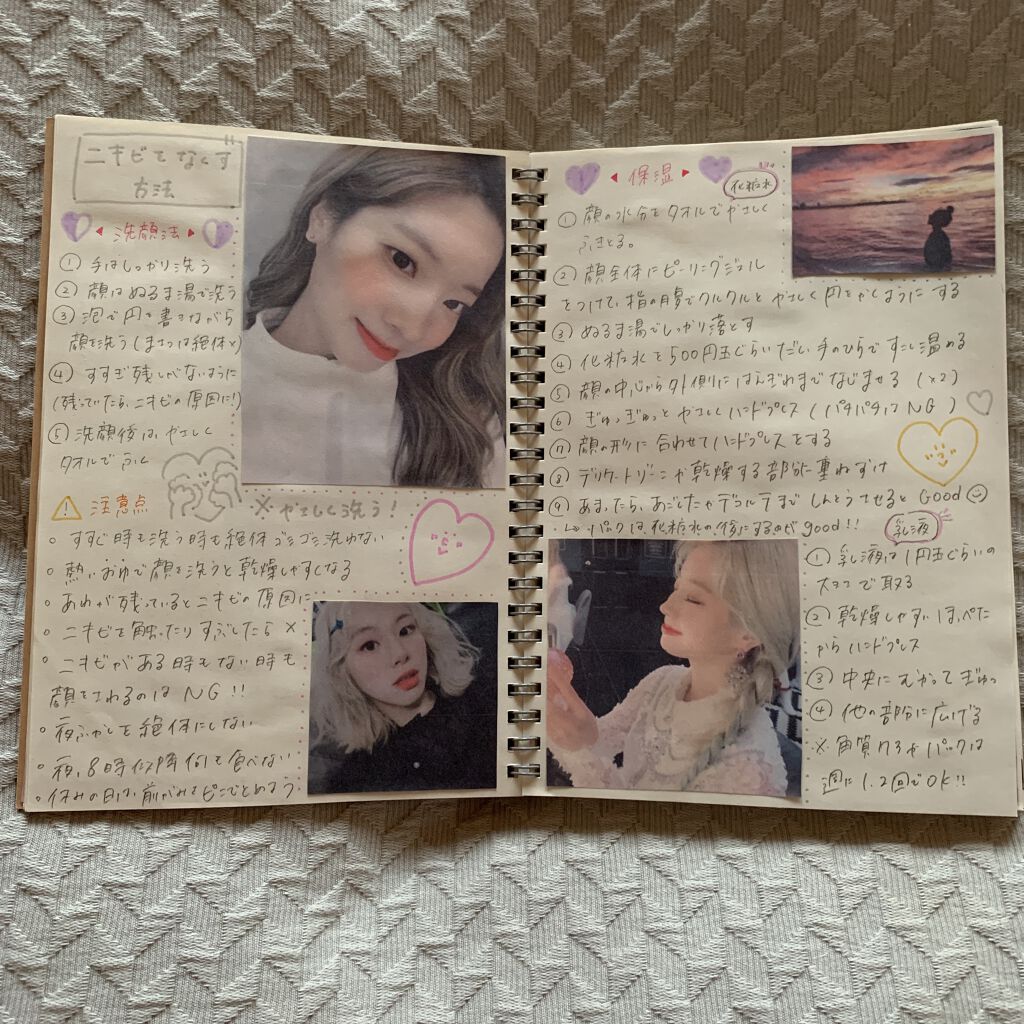 ニキビをなくす
方法
洗顔法
① 手はしっかり洗う
② 顔はぬるま湯で洗う
③ 泡で円を書きながら
顔を洗う(まさつは絶体×)
④ すすぎ残しがないように
(残っていたら、ニキビの原因に!)
⑤ 洗顔後は、やさしく
タオルでふく
※やさしく洗う!
注意点
。すすぐ時も洗う時も絶体ゴシゴシ洗わない
。熱いおゆで顔を洗うと乾燥しやすくなる
。あわが残っているとニキビの原因に
。ニキビを触ったりすぶしたら×
。ニキビがある時もない時も
顔をさわるのはNG!!
。夜ふかしを絶体にしない
。夜、8時以降何も食べない
。休みの日は、前がみをピンでとめよう
保湿
化粧水
① 顔の水分をタオルでやさしく
ふきとる。
② 顔全体にピーリングジェル
をつけて、指の腹でクルクルとやさしく円をかくようにする
③ ぬるま湯でしっかり落とす
④ 化粧水を500円玉ぐらいだし、手のひらですこし温める
⑤ 顔の中心から外側にはえぎわまでなじませる (×2)
⑥ ぎゅっぎゅっとやさしくハンドプレス (パチパチはNG)
⑦ 顔の形に合わせてハンドプレスをする
⑧ デリケートゾーンや乾燥する部分に重ねずけ
⑨ あまったら、あごしたやデコルテまでしんとうさせるとGood
↳ パックは、化粧水の後にするのがgood!!
乳液
① 乳液は1円玉ぐらいの
大きさで取る
② 乾燥しやすいほっぺた
からハンドプレス
③ 中央にむかってぎゅっ
④ 他の部分に広げる
※角質ケアやパックは
週に1.2回でOK!!